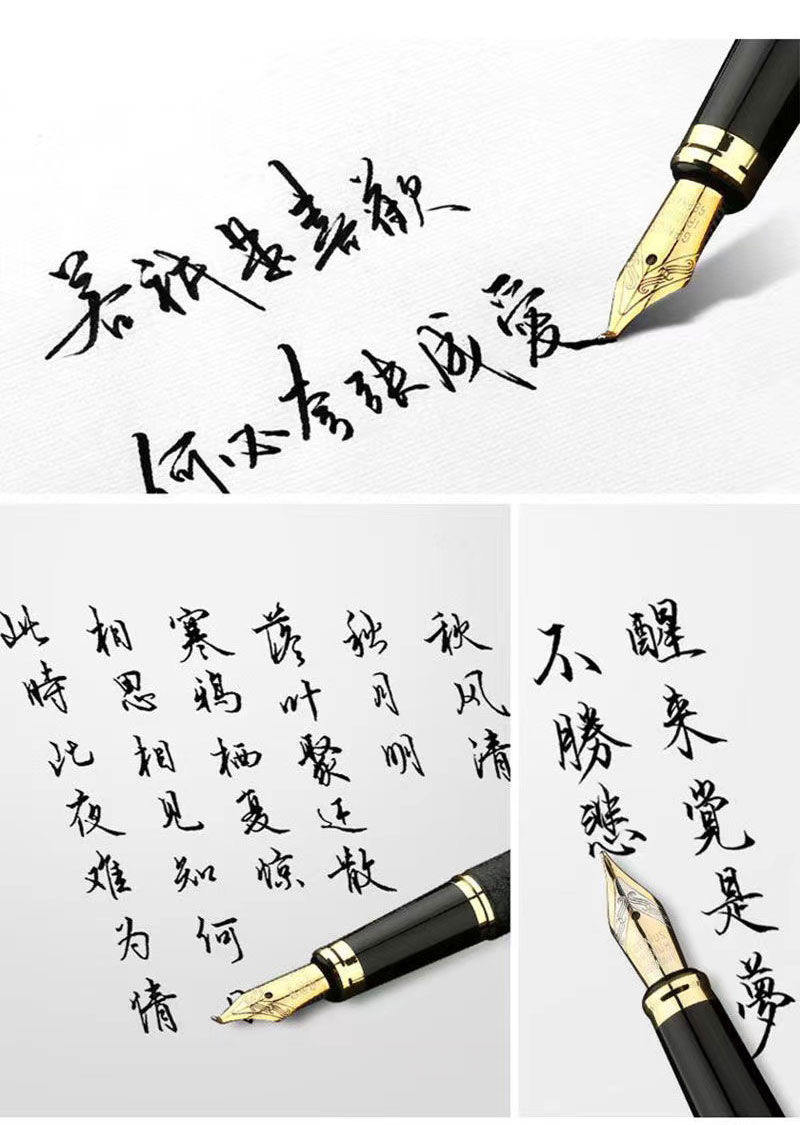 若祇是喜歡
何必夸張成愛
秋风清
秋月明
落叶聚还散
寒鸦栖复惊
相思相见知何
此時此夜难为情
醒来覺是夢
不勝悲